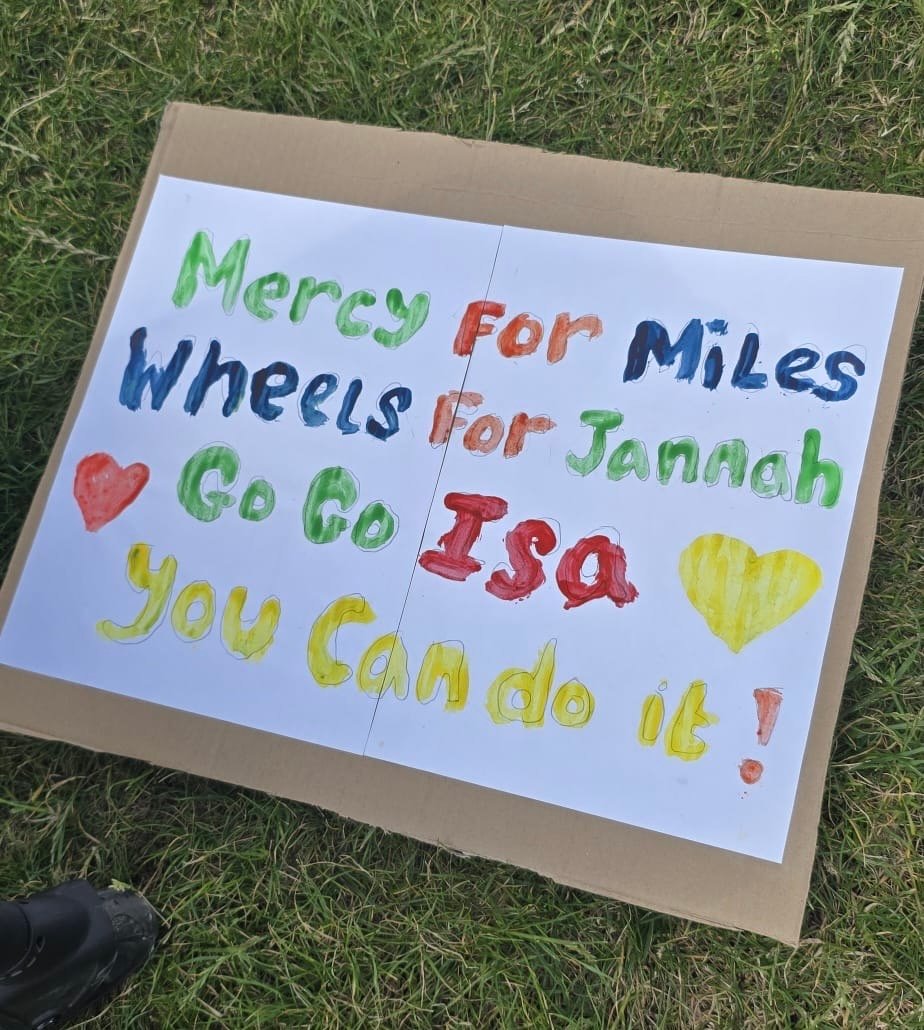 Mercy For Miles
Wheels For Jannah
Go Go Isa
You Can do it!